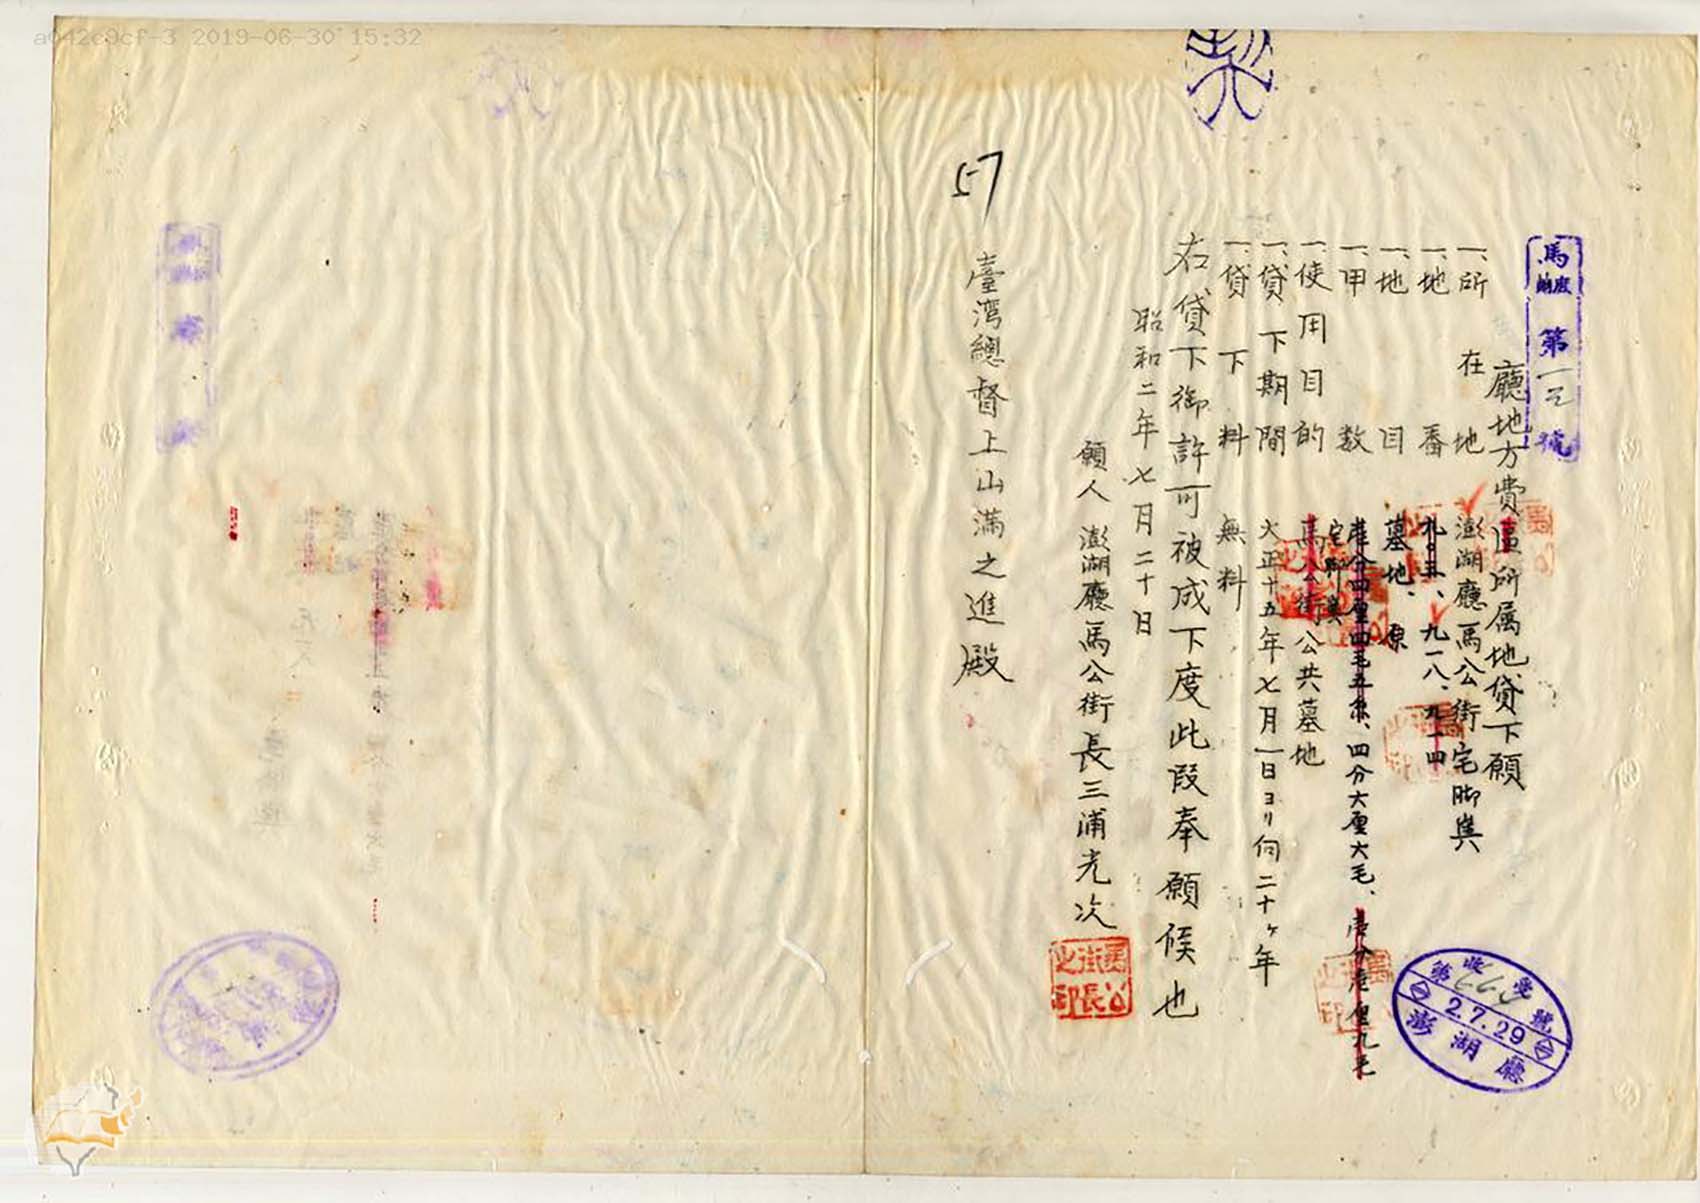 a042c9cf-3 2019-06-30 15:32
契
馬庶 第一三號
廳地方費區所屬地貸下願
一、所在地 澎湖廳馬公街宅脚嶼
一、地番 九〇五、九一八、九一四
一、地目 墓地、原
一、甲数 壹分四厘四毛五糸、四分六厘六毛、壹分壹厘九毛
宅脚嶼
一、使用目的 馬公街公共墓地
一、貸下期間 大正十五年七月一日ヨリ向二十ヶ年
一、貸下料 無料
右貸下御許可被成下度此段奉願候也
昭和二年七月二十日
願人 澎湖廳馬公街長三浦光次
馬公街長之印
臺湾總督上山満之進殿
57
收受
第 號
2.7.29
澎湖廳